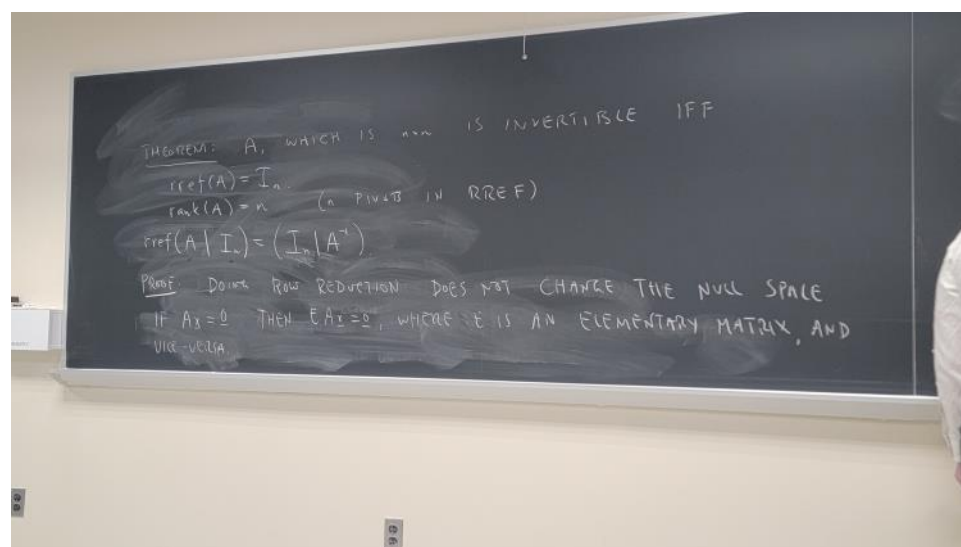 THEOREM: A, WHICH IS nxn IS INVERTIBLE IFF
rref(A) = Iₙ.
rank(A) = n (n PIVOTS IN RREF)
rref(A | Iₙ) = (Iₙ | A⁻¹)
PROOF: DOING ROW REDUCTION DOES NOT CHANGE THE NULL SPACE
IF Ax = 0 THEN EAx = 0, WHERE E IS AN ELEMENTARY MATRIX, AND
VICE-VERSA.